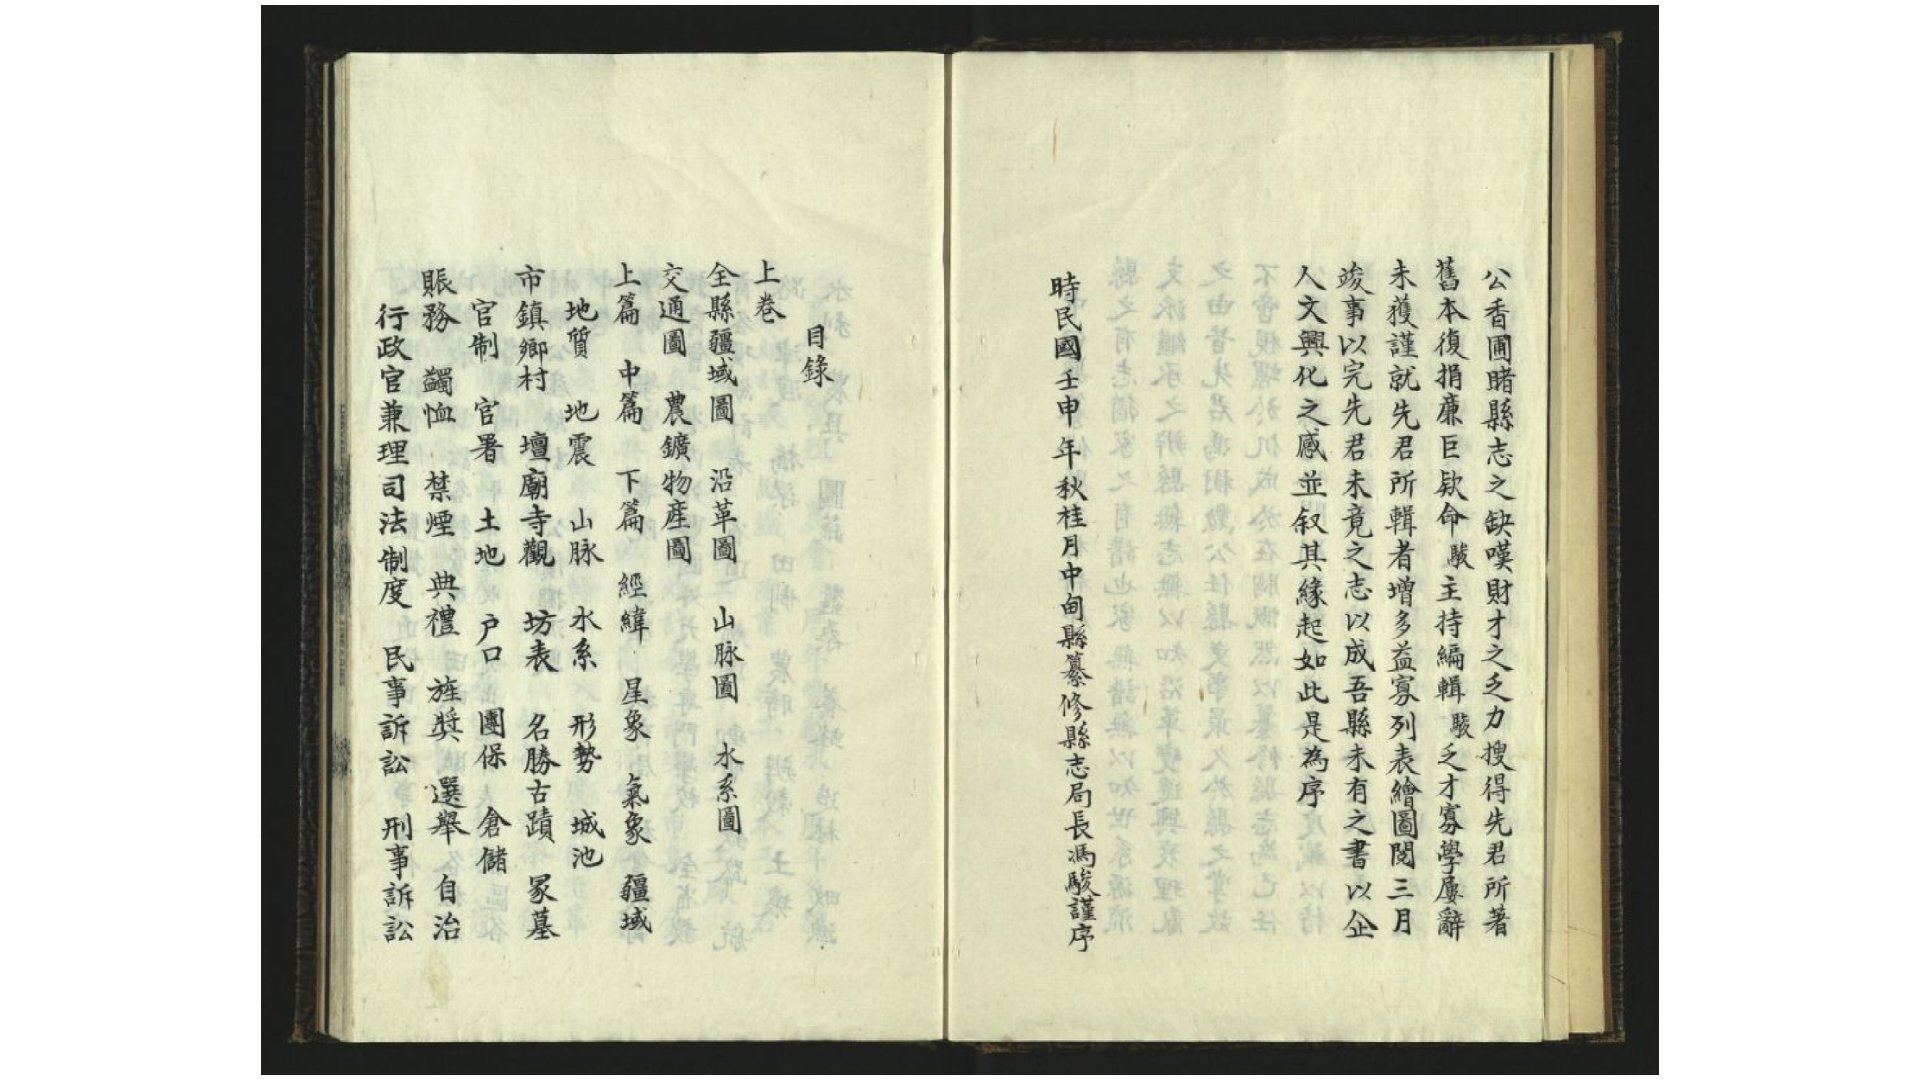 公香圃睹縣志之缺嘆財才之乏力搜得先君所著
舊本復捐廉巨欵命駿主持編輯駿乏才寡學屢辭
未獲謹就先君所輯者增多益寡列表繪圖閱三月
竣事以完先君未竟之志以成吾縣未有之書以企
人文興化之感並叙其緣起如此是為序
時民國壬申年秋桂月中甸縣纂修縣志局長馮駿謹序
目錄
上卷
全縣疆域圖 沿革圖 山脉圖 水系圖
交通圖 農鑛物產圖
上篇 中篇 下篇 經緯 星象 氣象 疆域
地質 地震 山脉 水系 形勢 城池
市鎮鄉村 壇廟寺觀 坊表 名勝古蹟 冢墓
官制 官署 土地 户口 團保 倉儲
賑務 蠲恤 禁煙 典禮 旌奬 選舉 自治
行政官兼理司法制度 民事訴訟 刑事訴訟